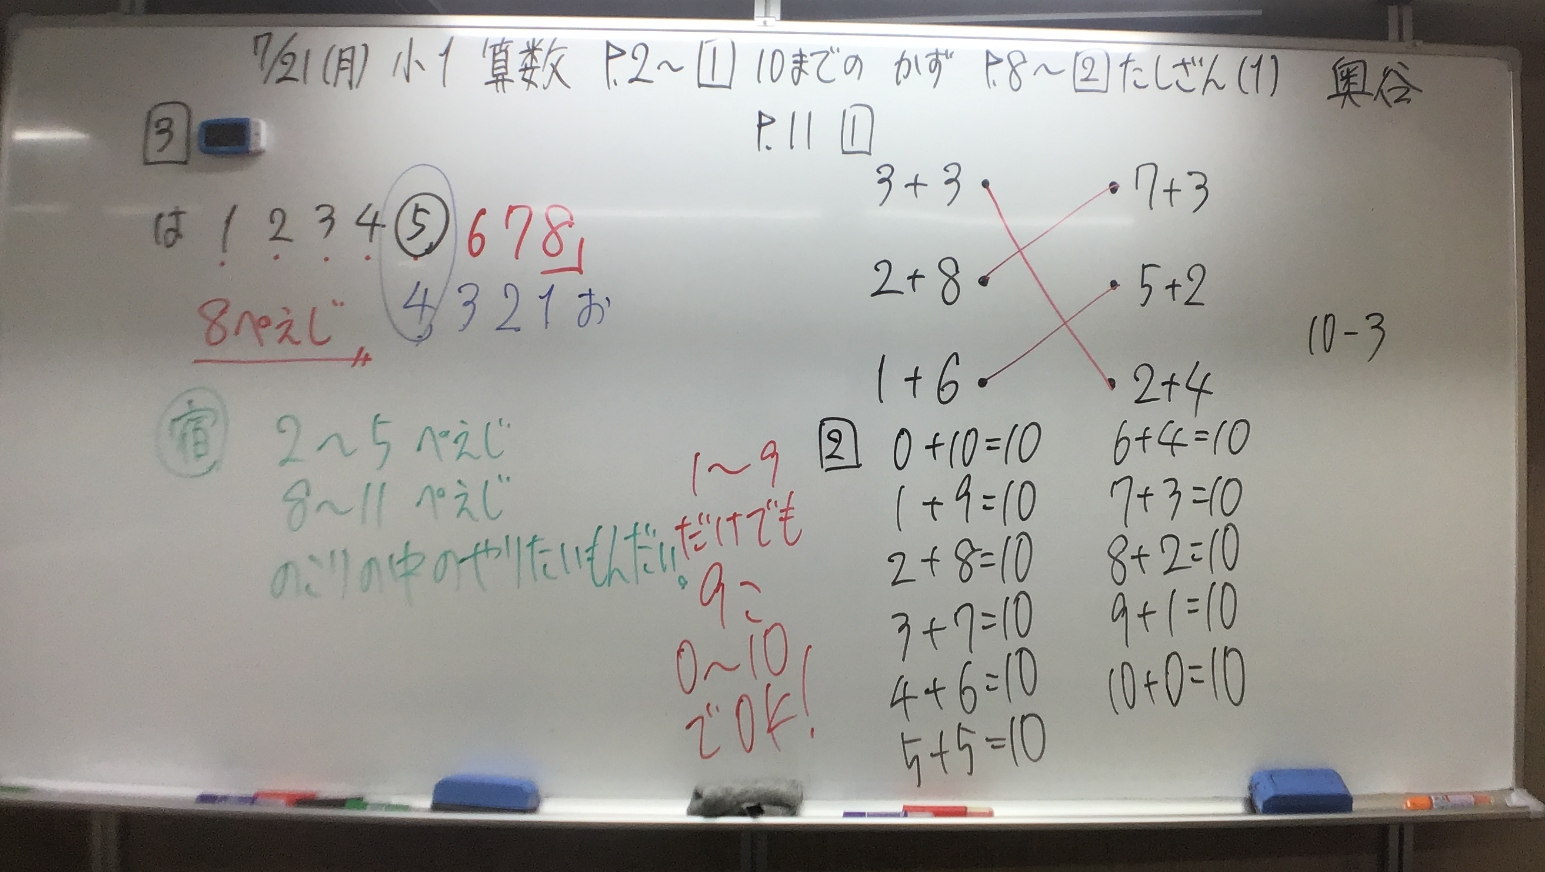 7/21(月) 小1 算数 P.2〜1 10までの かず P.8〜2 たしざん(1) 奥谷
3
は 1 2 3 4 5 6 7 8
4 3 2 1 お
8ぺえじ
宿 2〜5 ぺえじ
8〜11 ぺえじ
のこりの中のやりたいもんだい。
P.11 1
3+3 7+3
2+8 5+2
1+6 2+4
10-3
1〜9
だけでも
9こ
0〜10
でOK!
2 0+10=10 6+4=10
1+9=10 7+3=10
2+8=10 8+2=10
3+7=10 9+1=10
4+6=10 10+0=10
5+5=10